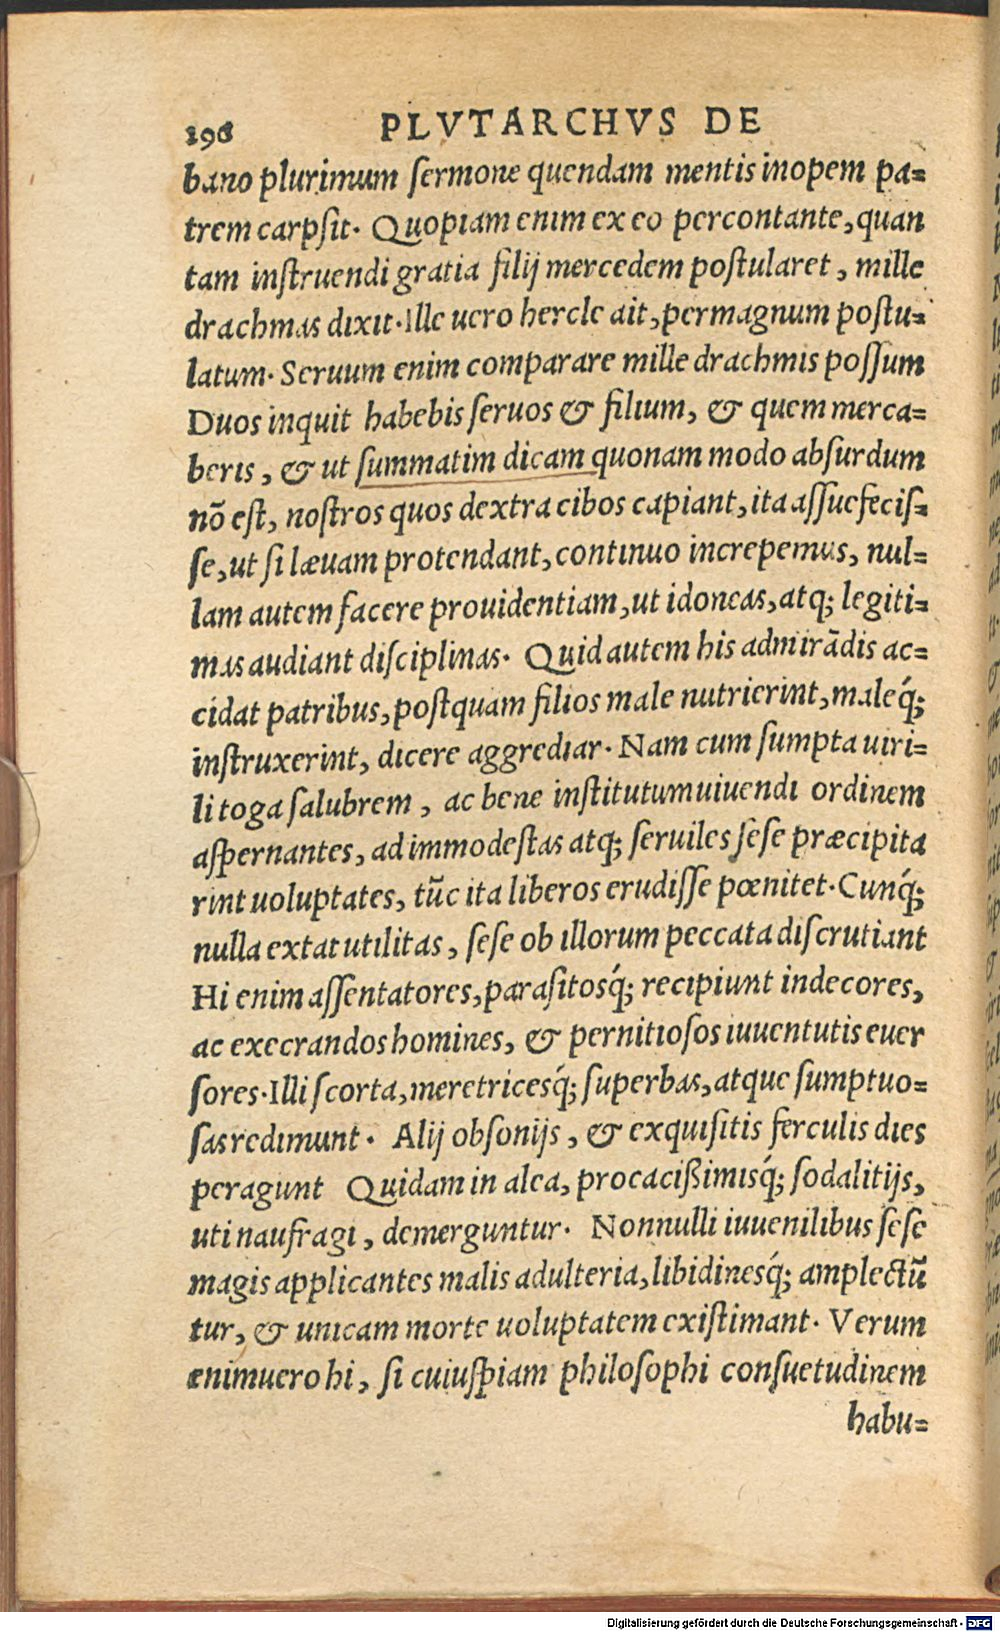 198 PLVTARCHVS DE
bano plurimum ſermone quendam mentis inopem pa=
trem carpſit. Quopiam enim ex eo percontante, quan
tam inſtruendi gratia filij mercedem poſtularet, mille
drachmas dixit. Ille uero hercle ait, permagnum poſtu=
latum. Seruum enim comparare mille drachmis poſſum
Duos inquit habebis ſeruos & filium, & quem merca=
beris, & ut ſummatim dicam quonam modo abſurdum
nõ eſt, noſtros quos dextra cibos capiant, ita aſſuefeciſ=
ſe, ut ſi læuam protendant, continuo increpemus, nul=
lam autem facere prouidentiam, ut idoneas, atq; legiti=
mas audiant diſciplinas. Quid autem his admirãdis ac=
cidat patribus, poſtquam filios male nutrierint, maleq́;
inſtruxerint, dicere aggrediar. Nam cum ſumpta uiri=
li toga ſalubrem, ac bene inſtitutum uiuendi ordinem
aſpernantes, ad immodeſtas atq; ſeruiles ſeſe præcipita
rint uoluptates, tũc ita liberos erudiſſe pœnitet. Cunq́;
nulla extat utilitas, ſeſe ob illorum peccata diſcrutiant
Hi enim aſſentatores, paraſitosq́; recipiunt indecores,
ac execrandos homines, & pernitioſos iuuentutis euer
ſores. Illi ſcorta, meretricesq́; ſuperbas, atque ſumptuo=
ſas redimunt. Alij obſonijs, & exquiſitis ferculis dies
peragunt Quidam in alea, procacißimisq́; ſodalitijs,
uti naufragi, demerguntur. Nonnulli iuuenilibus ſeſe
magis applicantes malis adulteria, libidinesq́; amplectũ
tur, & unicam morte uoluptatem exiſtimant. Verum
enimuero hi, ſi cuiuſpiam philoſophi conſuetudinem
habu=
Digitalisierung gefördert durch die Deutsche Forschungsgemeinschaft - DFG